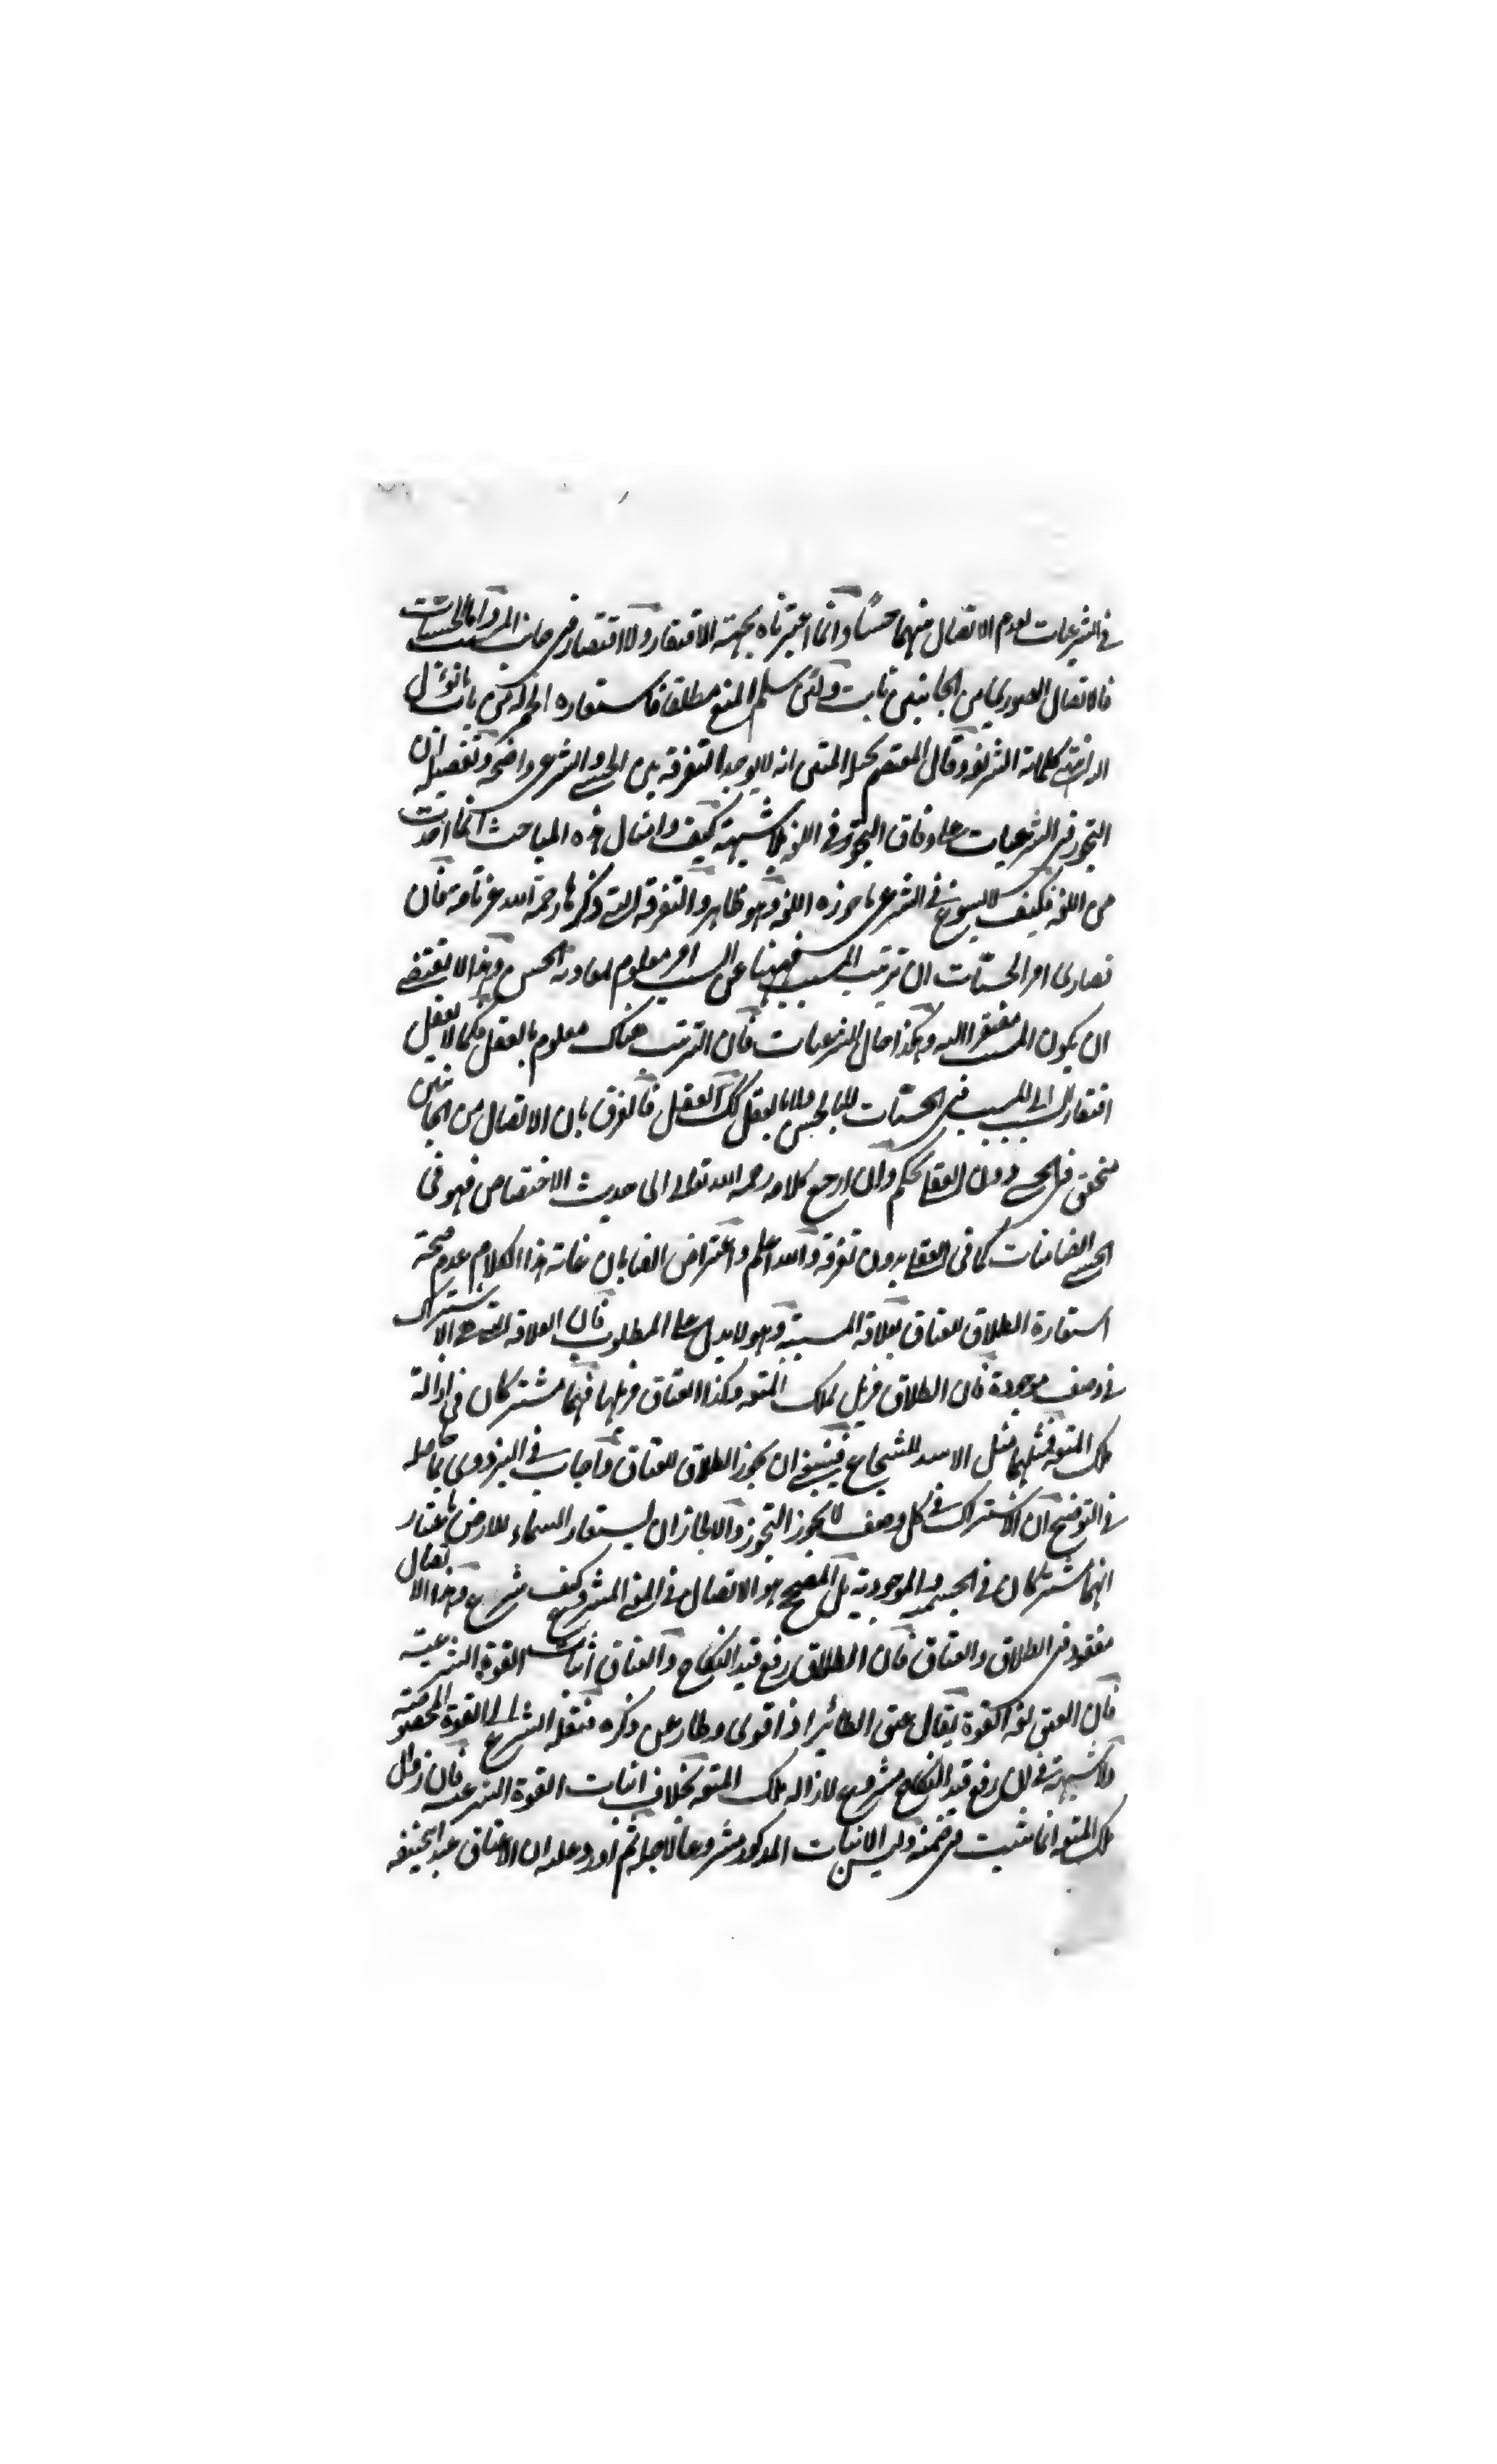 في الشرعيات لعدم الاتصال منهما حسا وانما اعتبرناه بجهة الافتقار ولا افتقار في جانب المسبب واما الحسيات
فالاتصال الصوري من الجانبين ثابت ولئن سلم المنع مطلقا فاستعارة الخمر له من باب
كلماته الشريفة وقال المعتصم بحبل المتين انه لا يوجد التفرقة بين الحسي والشرعي واضحة وتفصيله ان
التجوز في الشرعيات على وفاق التجوز في اللغة بلا شبهة كيف وامثال هذه المباحث انما اخذت
من اللغة فكيف لا يسوغ في الشرعي ما جوزه اللغة وهو ظاهر والتفرقة التي ذكرها رحمة الله غير تامة فان
قصارى امر الحسيات ان ترتب المسبب فيها على السبب امر معلوم بمعاونة الحس وهذا لا يقتضي
ان يكون المسبب مفتقرا اليه وهكذا حال الشرعيات فان الترتب هناك معلوم بالعقل فكما لا يعقل
افتقار السبب الى المسبب في الحسيات لا بالحس ولا بالعقل كذلك العقل فالفرق بان الاتصال من الجانبين
متحقق في الحسي دون العقلي تحكم وان ارجع كلامه رحمه الله تعالى الى حديث الاختصاص فهو في
الحسي ايضا فائت كما في العقلي بدون تفرقة والله اعلم واعترض ايضا بان غاية هذا الكلام عدم صحة
استعارة الطلاق للعتاق بعلاقة المسببية وهو لا يدل على المطلوب فان العلاقة التي هي الاشتراك
في وصف موجودة فان الطلاق مزيل لملك المتعة وكذا العتاق مزيل لها فهما مشتركان في ازالة
ملك المتعة فمثلهما مثل الاسد للشجاع فينبغي ان يجوز الطلاق للعتاق واجاب في البزدوي بما حاصله
في التوضيح ان الاشتراك في كل وصف لا يجوز التجوز والا لجاز ان يستعار السماء للارض باعتبار
انهما مشتركان في الجسمية والموجودية بل المصحح هو الاتصال في المعنى المشروع كيف شرع وهذا الاتصال
مفقود في الطلاق والعتاق فان الطلاق رفع قيد النكاح والعتاق اثبات القوة الشرعية
فان العتق لغة القوة يقال عتق الطائر اذا قوى وطار عن وكره فنقله الشرع الى القوة المخصوصة
ولا شبهة في ان رفع قيد النكاح مشروع لازالة ملك المتعة بخلاف اثبات القوة الشرعية فان زوال
ملك المتعة انما يثبت في ضمنه وليس الاثبات المذكور مشروعا لاجله ثم اورد عليه ان الاعتاق عند ابي حنيفة